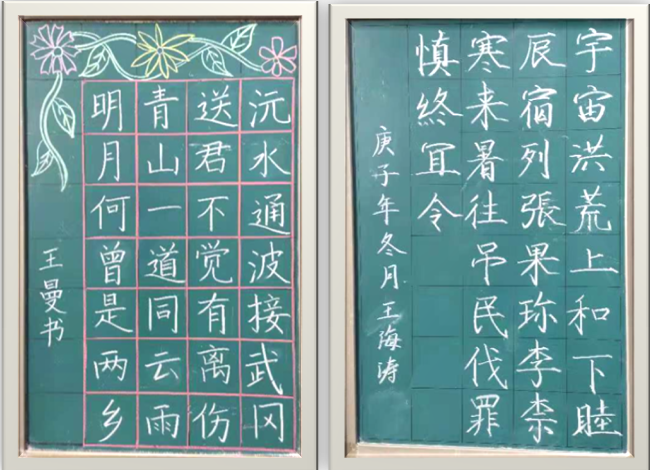 沅水通波接武冈
送君不觉有离伤
青山一道同云雨
明月何曾是两乡
王曼书
宇宙洪荒上和下睦
辰宿列張果珎李柰
寒来暑往吊民伐罪
慎終宜令
庚子年冬月王海涛